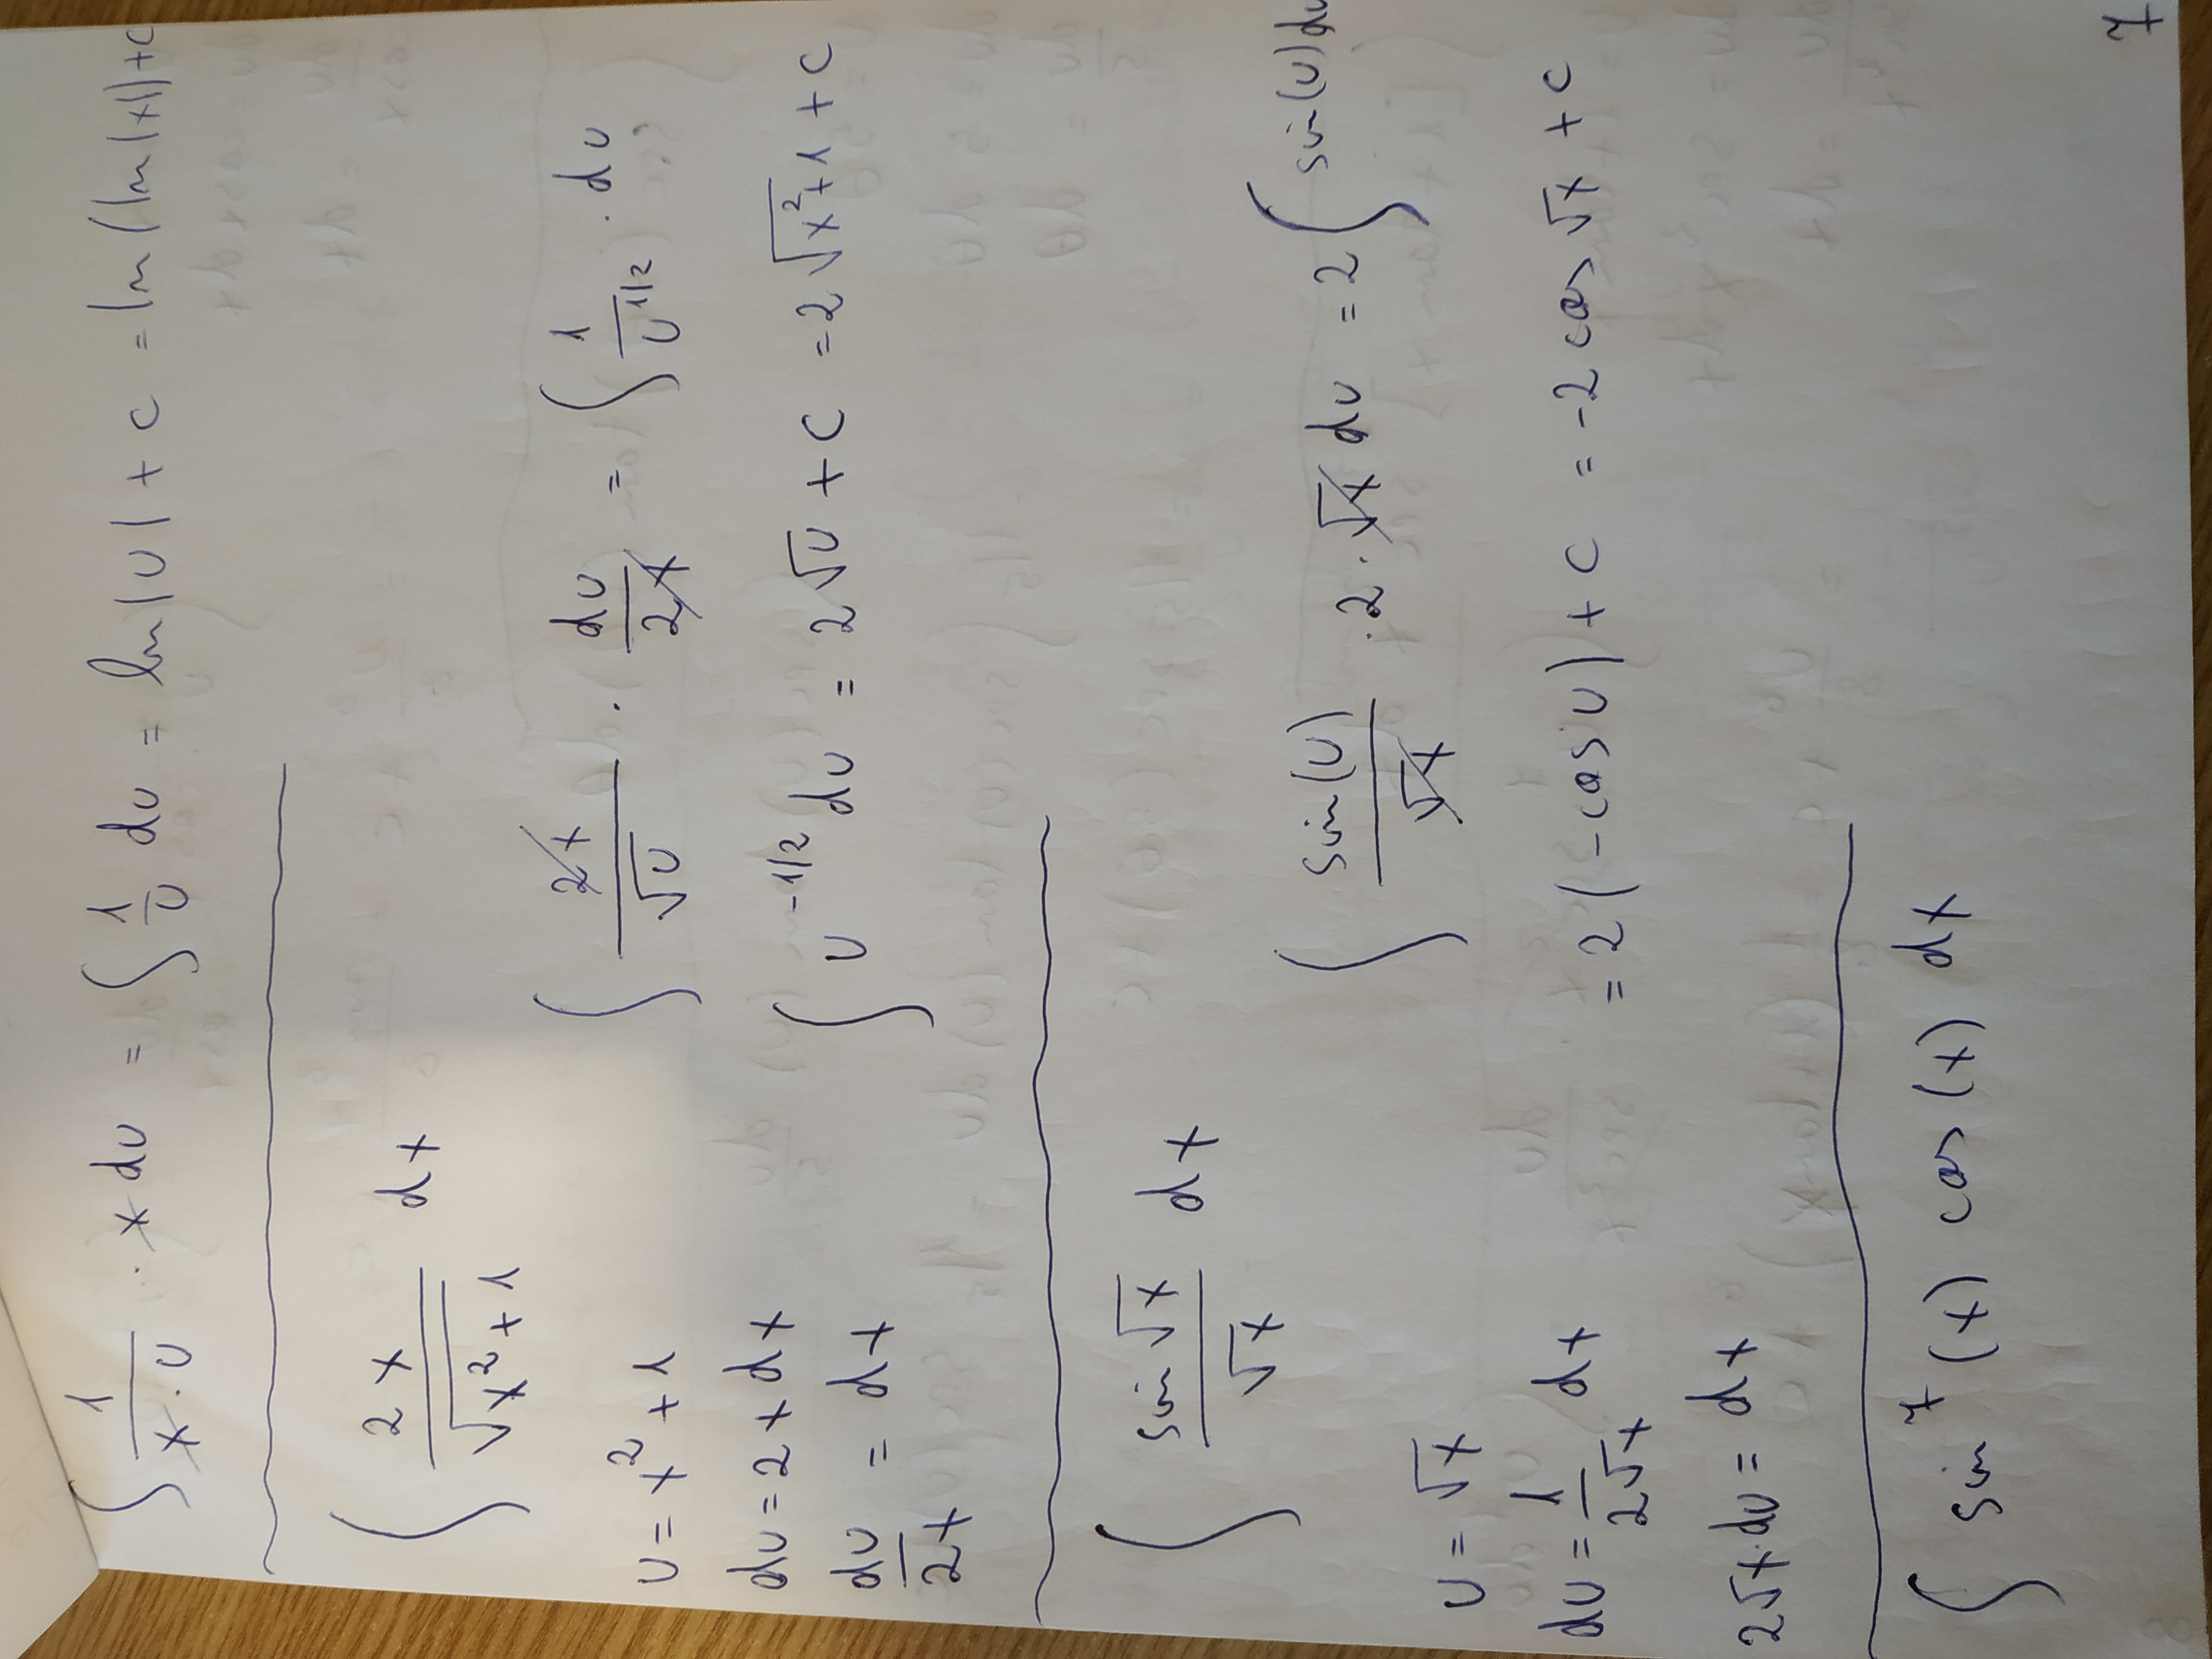 ∫ 1/(x · u) · x du = ∫ 1/u du = ln|u| + c = ln(ln|x|) + c
∫ 2x/√(x² + 1) dx
u = x² + 1
du = 2x dx
du/2x = dx
∫ 2x/√u · du/2x = ∫ 1/u^(1/2) · du
∫ u^(-1/2) du = 2√u + c = 2√(x²+1) + c
∫ sin√x/√x dx
u = √x
du = 1/(2√x) dx
2√x · du = dx
∫ sin(u)/√x · 2 · √x du = 2 ∫ sin(u) du
= 2(-cos u) + c = -2 cos √x + c
∫ sin⁷(x) cos(x) dx
7